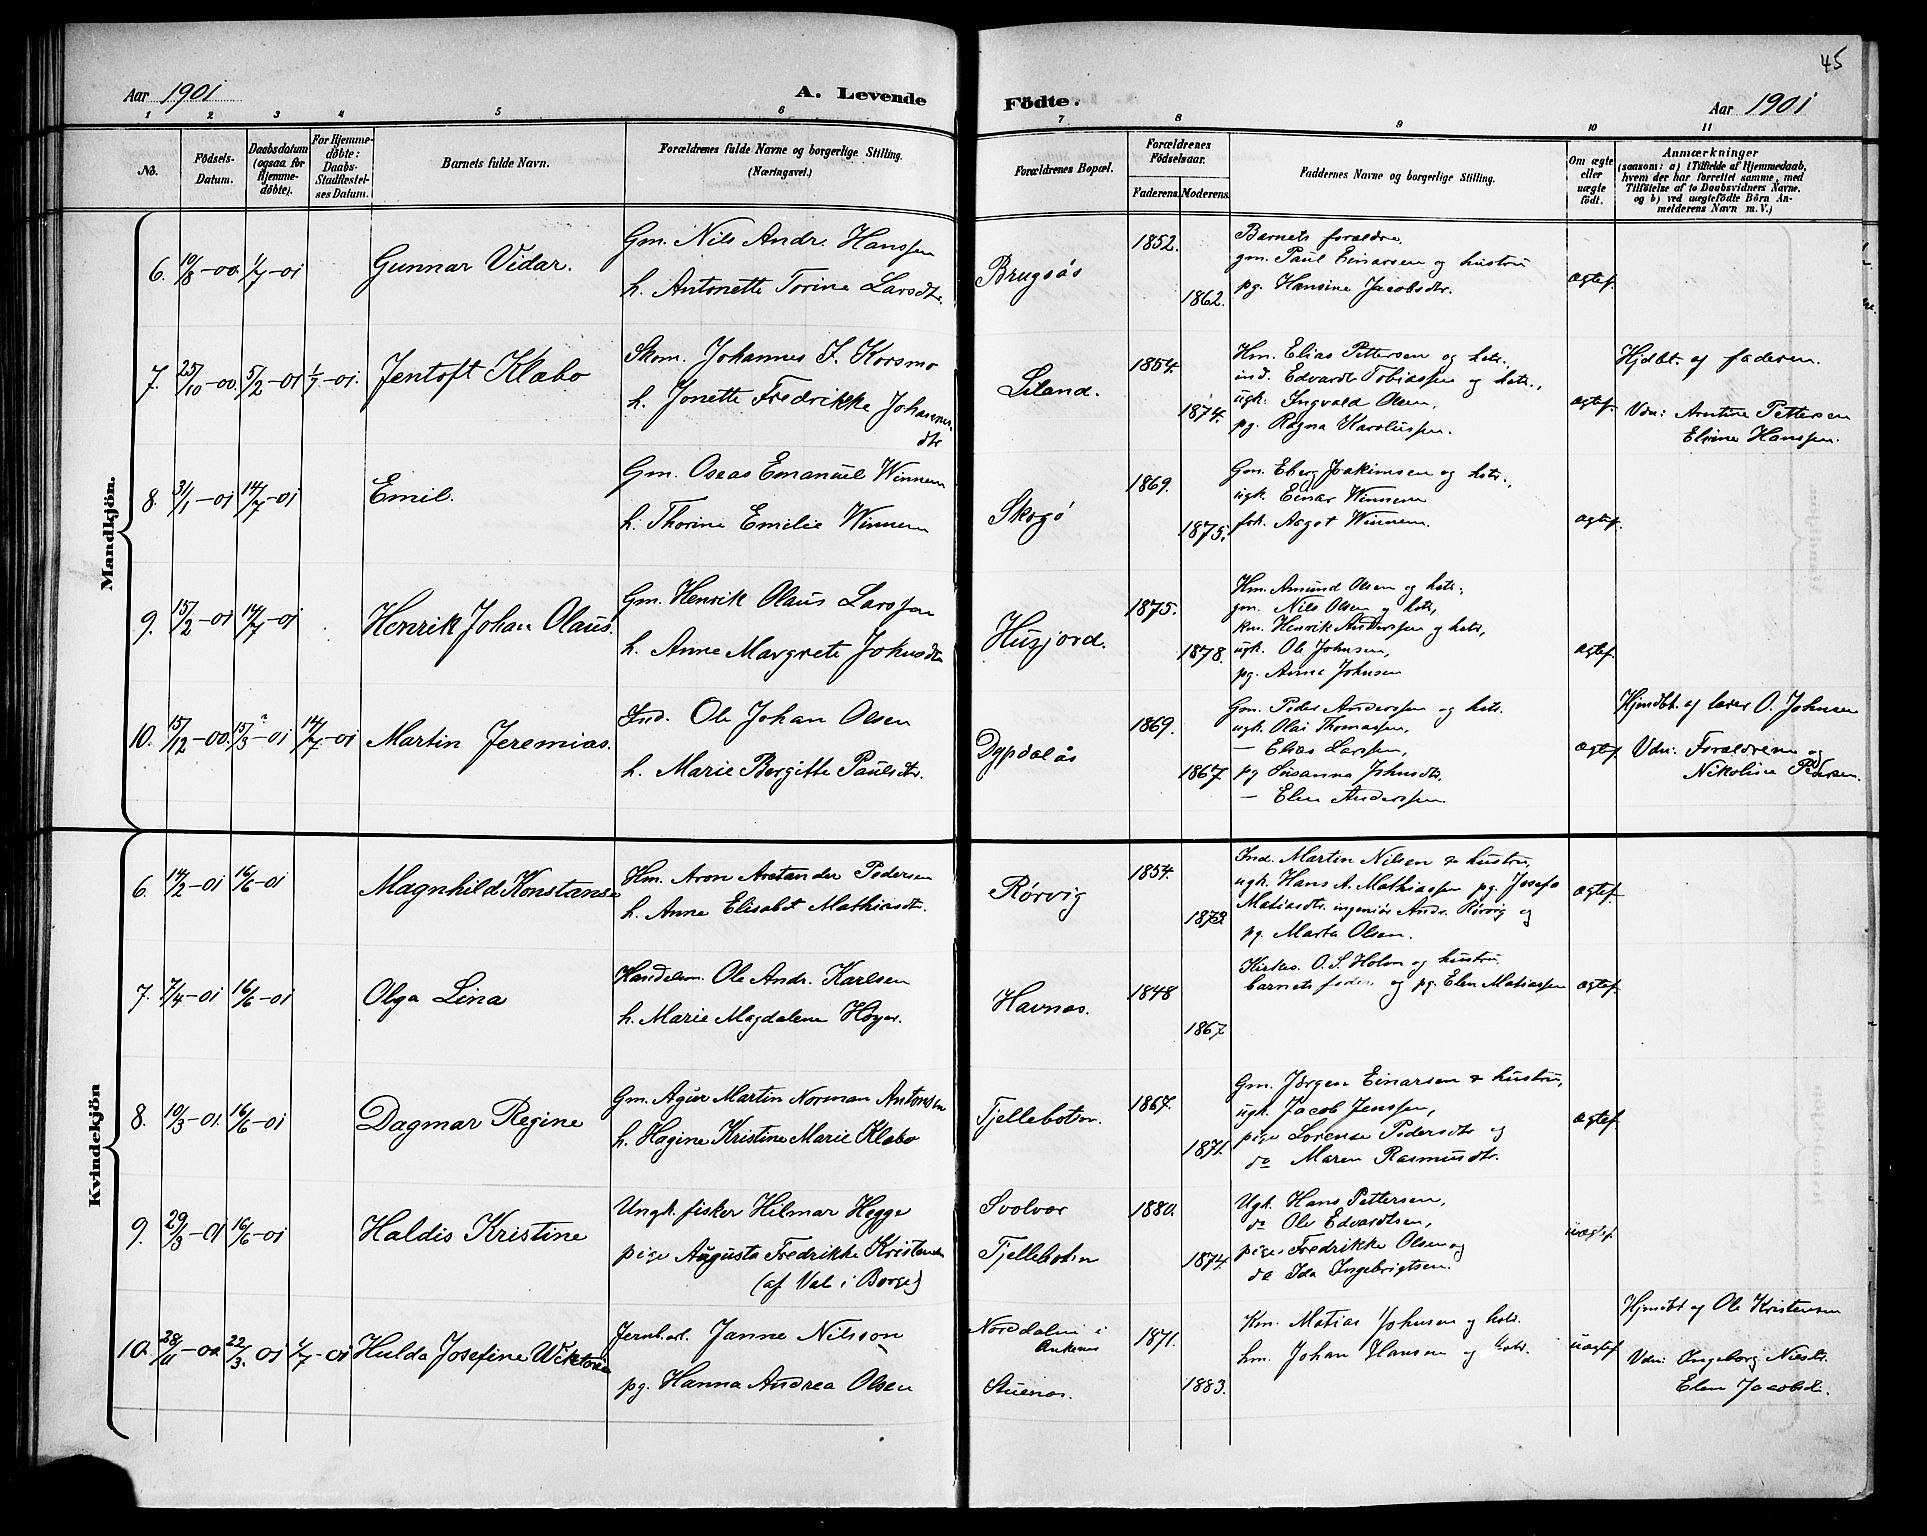 45
Aar 1901
A. Levende
Födte.
Aar 1901
1 2 3 4 5 6 7 8 9 10 11
No.
Födsels-
Datum.
Daabsdatum
(ogsaa for
Hjemme-
döbte).
For Hjemme-
döbte:
Daabs-
Stadfæstel-
ses Datum.
Barnets fulde Navn.
Forældrenes fulde Navne og borgerlige Stilling.
(Næringsvei.)
Forældrenes Bopæl.
Forældrenes
Födselsaar.
Faderens.
Moderens.
Faddernes Navne og borgerlige Stilling.
Om ægte
eller
uægte
födt.
Anmærkninger
(saasom: a) i Tilfælde af Hjemmedaab,
hvem der har forrettet samme, med
Tilföielse af to Daabsvidners Navne.
og b) ved uægtefödte Börn An-
melderens Navn m. V.)
Mandkjön.
6. 19/8-00. 1/7-01
Gunnar Vidar.
Gm. Nils Andr. Hanssen
h. Antonette Torine Larsdtr.
Brugsås
1852.
1862.
Barnets forældre,
gm. Paul Einarsen og hustru
pg. Hansine Jacobsdtr.
ægtef.
7. 25/10-00. 5/2-01 1/7-01.
Jentoft Klæbo
Skom. Johannes I. Korsmo
h. Jonette Fredrikke Johannes
dtr
Liland.
1854.
1874.
Hm. Elias Pettersen og hstr.
ind. Edvardt Tobiassen og hstr.,
ugk. Ingvald Olsen,
pg. Ragna Karolussen.
ægtef.
Hjdbt. af faderen.
Vdn: Arntine Pettersen
Elvine Hanssen.
8. 31/1-01 14/7-01
Emil.
Gm. Oseas Emanuel Winnem
h. Thorine Emilie Winnem
Skogö
1869.
1875.
Gm. Eberg Joakimsen og hstr.,
ugk. Einar Winnem
frk. Aagot Winnem.
ægtef.
9. 15/2-01 14/7-01
Henrik Johan Olaus.
Gm. Henrik Olaus Larssen
h. Anne Margrete Johnsdtr
Husjord.
1875.
1878.
Hm. Amund Olsen og hstr.,
gm. Nils Olsen og hstr,
km. Henrik Anderssen og hstr,
ugk. Ole Johnsen,
pg. Anna Johnsen
ægtef.
10. 15/12-00. 15/3-01 ? 14/7-01
Martin Jeremias.
Ind. Ole Johan Olsen
h. Marie Bergitte Paulsdtr.
Dypdalås
1869.
1867.
Gm. Peder Anderssen og hstr.
ugk. Olai Thomassen,
— Elias Larssen,
pg Susanna Johnsdtr.
— Elen Anderssen
ægtef.
Hjmdbt. af lærer O. Johnsen
Vdn: Forældrene og
Nikoline Pedersen.
Kvindekjön
6. 14/2-01 16/6-01
Magnhild Konstanse
Hm. Aron Arctander Pedersen
h. Anne Elisabet Mathiasdtr.
Rørvig
1854.
1873.
Ind. Martin Nilsen & hustru,
ugk. Hans A. Mathiassen pg. Josefa
Matiasdtr. ingeniör Andr. Rørvig og
pg. Marta Olsen.
ægtef.
7. 7/4-01 16/6-01
Olga Lina
Handelsm. Ole Andr. Karlsen
h. Marie Magdalene Høyer.
Havnæs.
1848
1867
Kirkes. O. S. Holm og hustru,
barnets fader og pg. Elen Matiassen
ægtef.
8. 10/3-01. 16/6-01
Dagmar Regine
Gm. Agur Martin Norman Antonsen
h. Hagine Kristine Marie Klæbo
Fjellebotn.
1867.
1871.
Gm. Jørgen Einarsen & hustru,
ugk. Jacob Jenssen,
pige Lorense Pedersdtr og
do Maren Rasmusdtr.
ægtef.
9. 29/3-01 16/6-01
Haldis Kristine
Ungk. fisker Hilmar Hegge
pige Augusta Fredrikke Kristensen
(af Val i Borge)
Svolvær
Fjellebotn
1880.
1874.
Ugk. Hans Pettersen,
do Ole Edvardtsen,
pige Fredrikke Olsen og
do Ida Ingebrigtsen.
uægtef.
10. 28/11-00 22/3-01 1/7-01
Hulda Josefine Wiktoria
Jernb.arb. Janne Nilsson
pg. Hanna Andrea Olsen
Norddalen i
Ankenes
Stuenæs.
1871.
1883.
Km. Matias Johnsen og hstr.
hm. Johan Hansen og hstr.
uægtef
Hjmdbt af Ole Kristensen
Vdn: Ingeborg Nilsdtr.
Elen Jacobsdr.